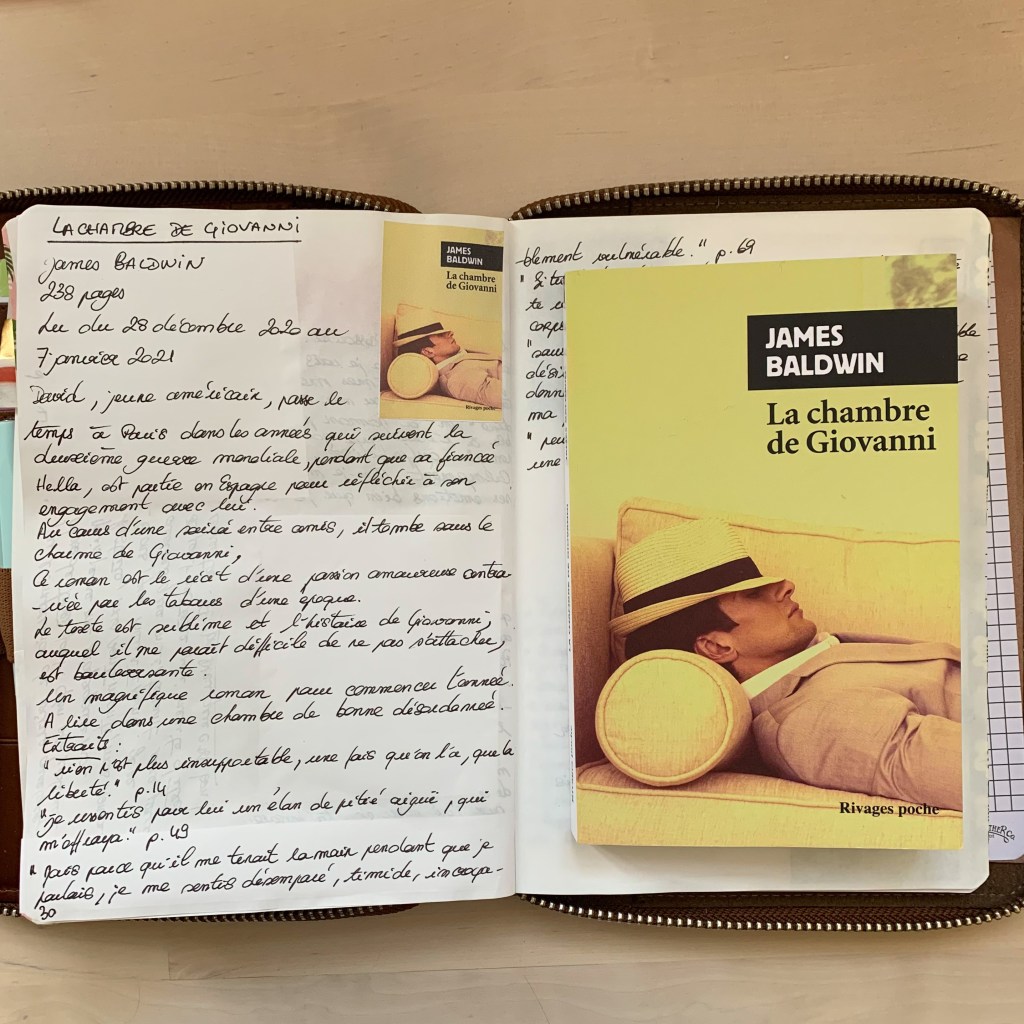 LA CHAMBRE DE GIOVANNI
James BALDWIN
238 pages
Lu du 28 décembre 2020 au
7 janvier 2021
David, jeune américain, passe le
temps à Paris dans les années qui suivent la
deuxième guerre mondiale, pendant que sa fiancée
Hella, est partie en Espagne pour réfléchir à son
engagement avec lui.
Au cours d'une soirée entre amis, il tombe sous le
charme de Giovanni,
Ce roman est le récit d'une passion amoureuse contra-
-riée par les tabous d'une époque.
Le texte est sublime et l'histoire de Giovanni,
auquel il me paraît difficile de ne pas s'attacher,
est bouleversante.
Un magnifique roman pour commencer l'année.
A lire dans une chambre de bonne désordonnée.
Extraits :
"rien n'est plus insupportable, une fois qu'on l'a, que la
liberté." p.14
"Je ressentis pour lui un élan de pitié aiguë, qui
m'effraya." p. 49
"Mais parce qu'il me tenait la main pendant que je
parlais, je me sentis désemparé, timide, incroya-
30
JAMES
BALDWIN
La chambre
de Giovanni
Rivages poche
blement vulnérable." p. 69
te
corps
"sans
désir
donn
ma
"peu
une
JAMES
BALDWIN
La chambre
de Giovanni
Rivages poche